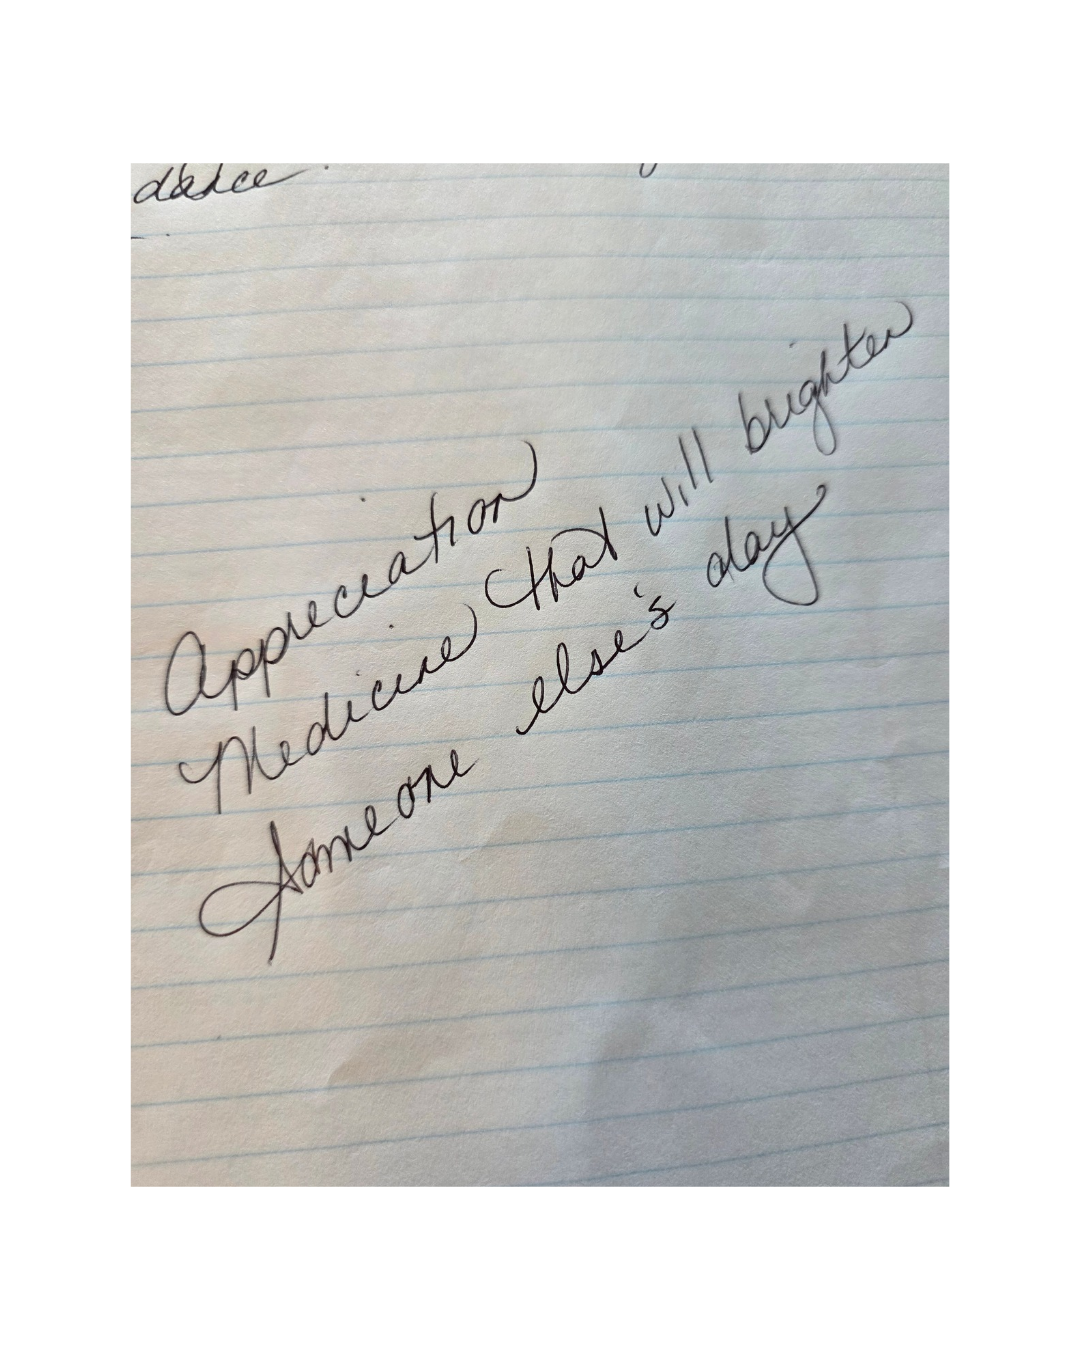 dance
Appreciation
Medicine that will brighten
Someone else's day